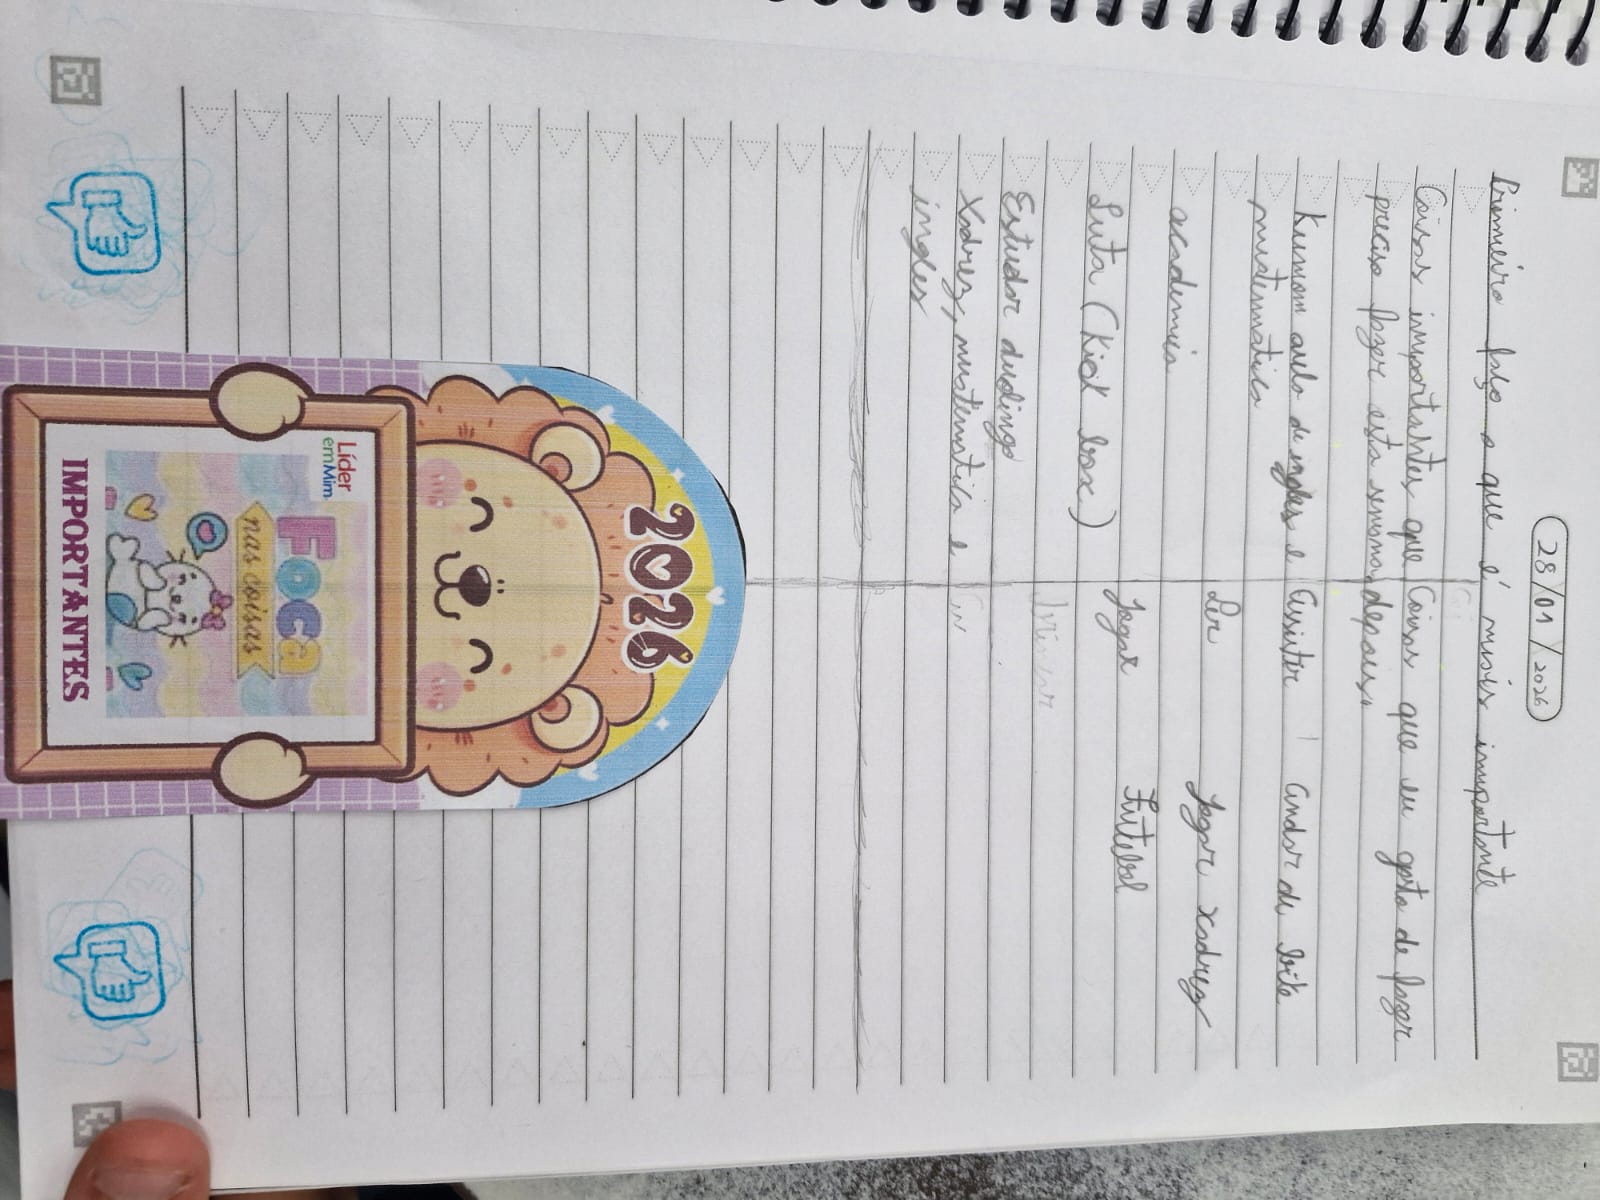 28/01/2026
Primeiro faço o que é mais importante
Coisas importantes que
preciso fazer esta semana
Kumon aula de ingles e
matematica
academia
Luta (Kick box)
Estudar duolingo
Xadrez, matematica e
ingles
Coisas que eu gosto de fazer
depois.
Assistir
andar de bike
Ler
Jogar xadrez
Jogar
Futebol
2026
Líder
em Mim
FOCa
nas coisas
IMPORTANTES